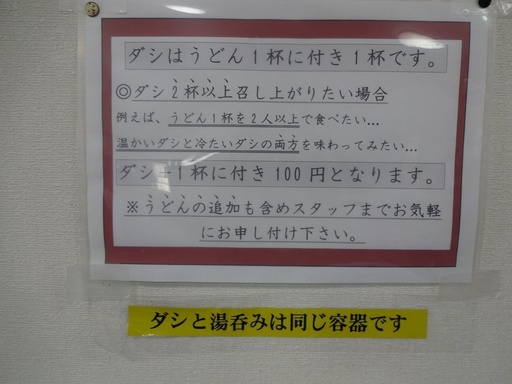 ダシはうどん1杯に付き1杯です。
◎ダシ2杯以上召し上がりたい場合
例えば、うどん1杯を2人以上で食べたい…
温かいダシと冷たいダシの両方を味わってみたい…
ダシ+1杯に付き100円となります。
※うどんの追加も含めスタッフまでお気軽
にお申し付け下さい。
ダシと湯呑みは同じ容器です